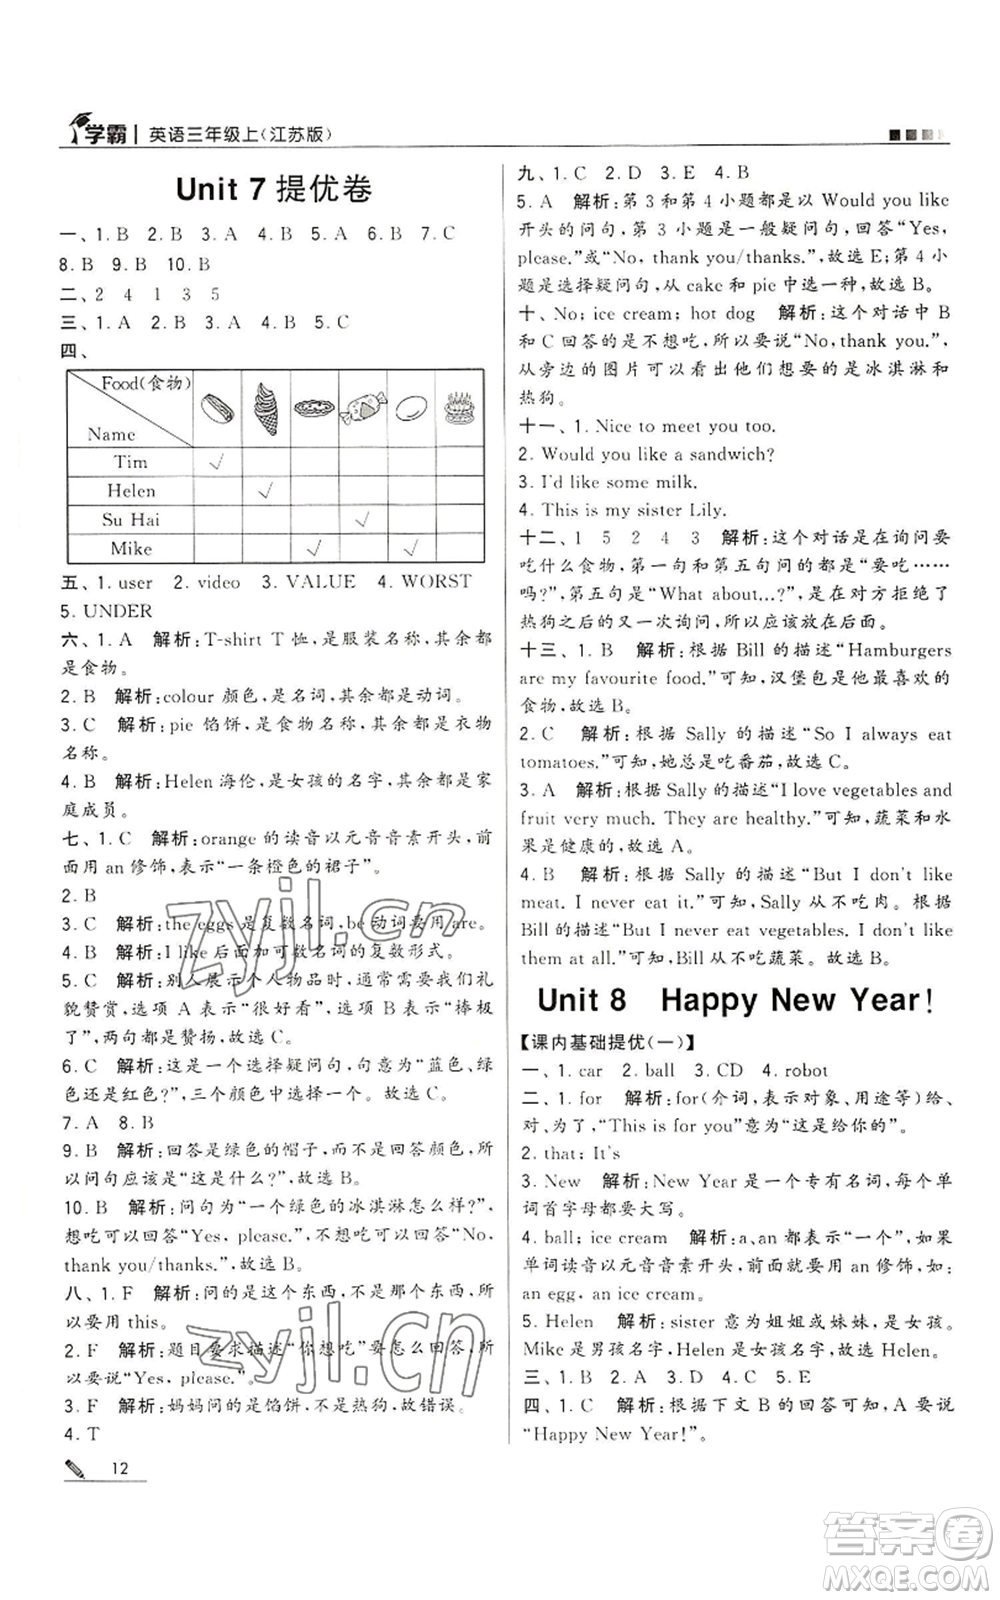 学霸 | 英语三年级上(江苏版)
Unit 7 提优卷
一、1. B 2. B 3. A 4. B 5. A 6. B 7. C
8. B 9. B 10. B
二、2 4 1 3 5
三、1. A 2. B 3. A 4. B 5. C
四、
Food(食物)
Name
Tim ✓
Helen ✓
Su Hai ✓
Mike ✓ ✓
五、1. user 2. video 3. VALUE 4. WORST
5. UNDER
六、1. A 解析:T-shirt T 恤,是服装名称,其余都
是食物。
2. B 解析:colour 颜色,是名词,其余都是动词。
3. C 解析:pie 馅饼,是食物名称,其余都是衣物
名称。
4. B 解析:Helen 海伦,是女孩的名字,其余都是家
庭成员。
七、1. C 解析:orange 的读音以元音音素开头,前
面用 an 修饰,表示“一条橙色的裙子”。
2. B
3. C 解析:the eggs 是复数名词,be 动词要用 are。
4. B 解析:I like 后面加可数名词的复数形式。
5. C 解析:别人展示个人物品时,通常需要我们礼
貌赞赏,选项 A 表示“很好看”,选项 B 表示“棒极
了”,两句都是赞扬,故选 C。
6. C 解析:这是一个选择疑问句,问“它是蓝色、绿
色还是红色?”,具体选择了绿色。故选 C。
7. A 8. B
9. B 解析:回答是绿色的帽子,而不是回答颜色,所
以问句应该是“这是什么?”,故选 B。
10. B 解析:问句为“一个绿色的冰淇淋怎么样?”,
想吃可以回答“Yes, please.”,不想吃可以回答“No,
thank you/thanks.”,故选 B。
八、1. F 解析:问的是这个东西,不是那个东西,所
以要用 this。
2. F 解析:题目要求描述“你想吃”怎么回答,所
以要说“Yes, please.”。
3. F 解析:妈妈问的是馅饼,不是热狗,故错误。
4. T
12
九、1. C 2. D 3. E 4. B
5. A 解析:第 3 和第 4 小题都是以 Would you like
开头的问句,第 3 小题是一般疑问句,回答“Yes,
please.”或“No, thank you/thanks.”,故选 E;第 4 小
题是选择疑问句,从 cake 和 pie 中选一种,故选 B。
十、No; ice cream; hot dog 解析:这个对话中 B
和 C 回答的是不想吃,所以要说“No, thank you.”,
从旁边的图片可以看出他们想要吃的是冰淇淋和
热狗。
十一、1. Nice to meet you too.
2. Would you like a sandwich?
3. I'd like some milk.
4. This is my sister Lily.
十二、1 5 2 4 3 解析:这个对话是在询问要
吃什么食物,第一句和第五句问的都是“要吃……
吗?”,第五句是“What about...?”,是在对方拒绝了
热狗之后的又一次询问,所以应该放在后面。
十三、1. B 解析:根据 Bill 的描述“Hamburgers
are my favourite food.”可知,汉堡包是他最喜欢的
食物,故选 B。
2. C 解析:根据 Sally 的描述“So I always eat
tomatoes.”可知,她总是吃番茄,故选 C。
3. A 解析:根据 Sally 的描述“I love vegetables and
fruit very much. They are healthy.”可知,蔬菜和水
果是健康的,故选 A。
4. B 解析:根据 Sally 的描述“But I don't like
meat. I never eat it.”可知,Sally 从不吃肉。根据
Bill 的描述“But I never eat vegetables. I don't like
them at all.”可知,Bill 从不吃蔬菜。故选 B。
Unit 8 Happy New Year!
【课内基础提优(一)】
一、1. car 2. ball 3. CD 4. robot
二、1. for 解析:for(介词,表示对象、用途等)给、
对、为了,“This is for you”意为“这是给你的”。
2. that; It's
3. New 解析:New Year 是一个专有名词,每个单
词首字母都要大写。
4. ball; ice cream 解析:a、an 都表示“一个”,如果
单词读音以元音音素开头,要用 an 修饰,如:
an egg, an ice cream。
5. Helen 解析:sister 意为姐姐或妹妹,是女孩。
Mike 是男孩名字,Helen 是女孩名字,故选 Helen。
三、1. B 2. D 3. A 4. C 5. E
四、1. C 解析:根据下文 B 的回答可知,A 要说
“Happy New Year!”。
zyjl.cn
zyjl.cn
答案圈
MXQE.COM